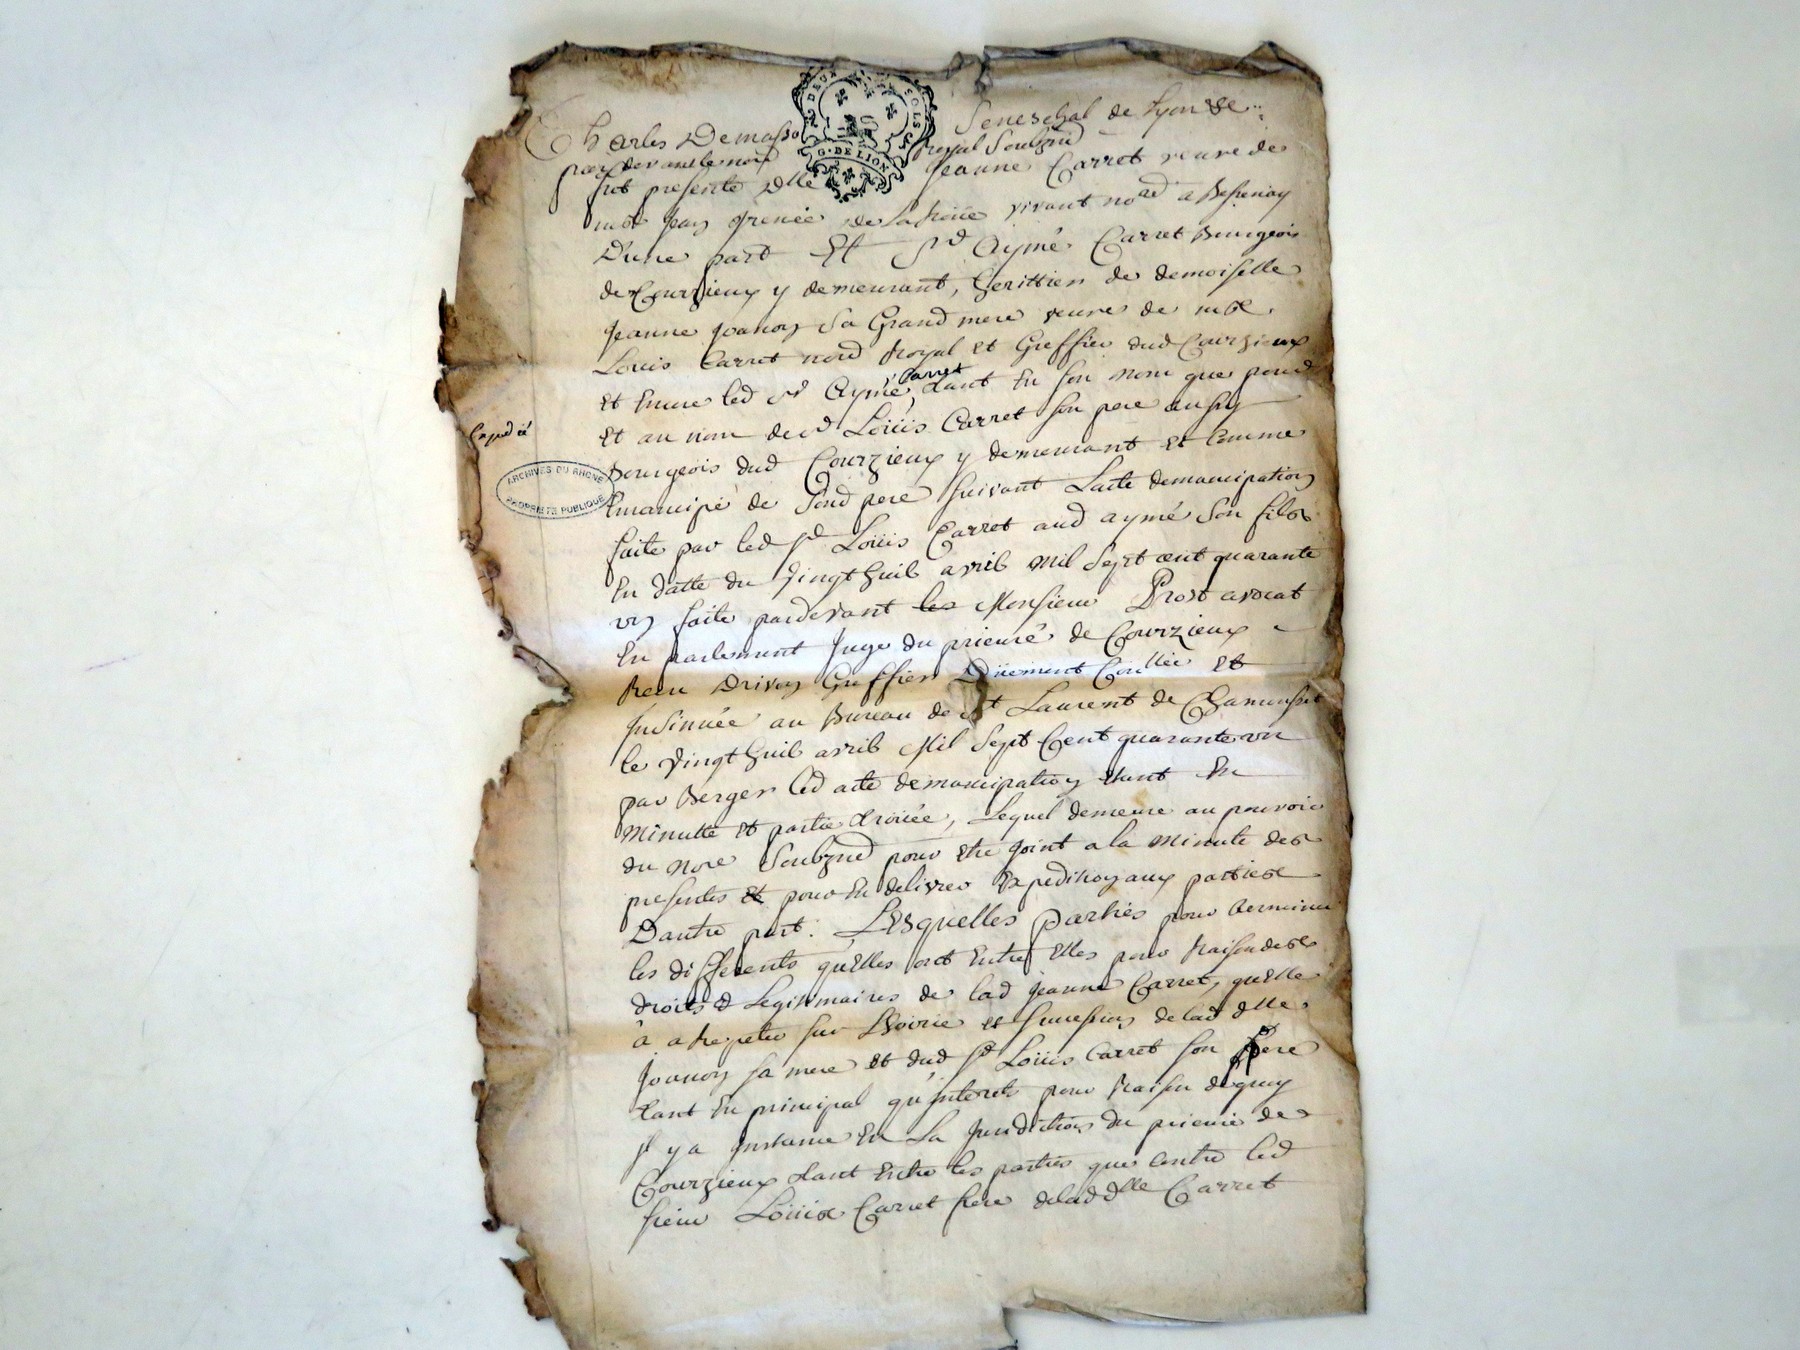 DEUX SOLS
G. DE LION
Charles Demasso Seneschal de Lyon &c
pardevant le no.re Royal Soubzné
fut presente Dlle Jeanne Carret veuve de
me Jean grenée de La Roüe vivant nored a Bessenay
D'une part Et Sr Aymé Carret Bourgeois
de Courzieux y demeurant, herittier de demoiselle
Jeanne Joanon Sa Grand mere veuve de me
Louis Carret nore Royal et Greffier dud Courzieux
et Encore led Sr Aymé Carret, tant En son nom que pour
et au nom de Sr Loüis Carret son pere aussy
Expedié
Bourgeois dud Courzieux y demeurant et comme
ARCHIVES DU RHONE
PROPRIETE PUBLIQUE
Emancipé de Sond pere suivant Lacte demancipation
faite par led Sr Loüis Carret aud aymé Son fils
En datte du vingt huit avril Mil Sept cent quarante
un faite pardevant les Monsieur Prost avocat
En parlement Juge du prieuré de Courzieux
Receu Drivon Greffier Düement Conllée et
Insinuée au Bureau de St Laurent de Chamousset
le vingt huit avril Mil Sept Cent quarante un
par Berger led acte demancipation Etant En
Minutte et partie trouée, Lequel demeure au pouvoir
du nore Soubzné pour Etre joint a la Minute des
presentes et pour En delivrer Expedition aux parties
Dautre part. LEsquelles Parties pour terminer
les differents qu'Elles ont Entre Elles pour Raison des
droits Legitimaires de lad Jeanne Carret, quelle
à a Repeter sur Lhoirie et succession de lad dlle
Joanon sa mere et dud Sr Loüis Carret son pere
tant En principal qu'interets pour Raison dequoy
Il y a Instance En La Jurisdiction du prieuré de
Courzieux tant Entre les parties que contre led
sieur Loüis Carret frere de lad dlle Carret